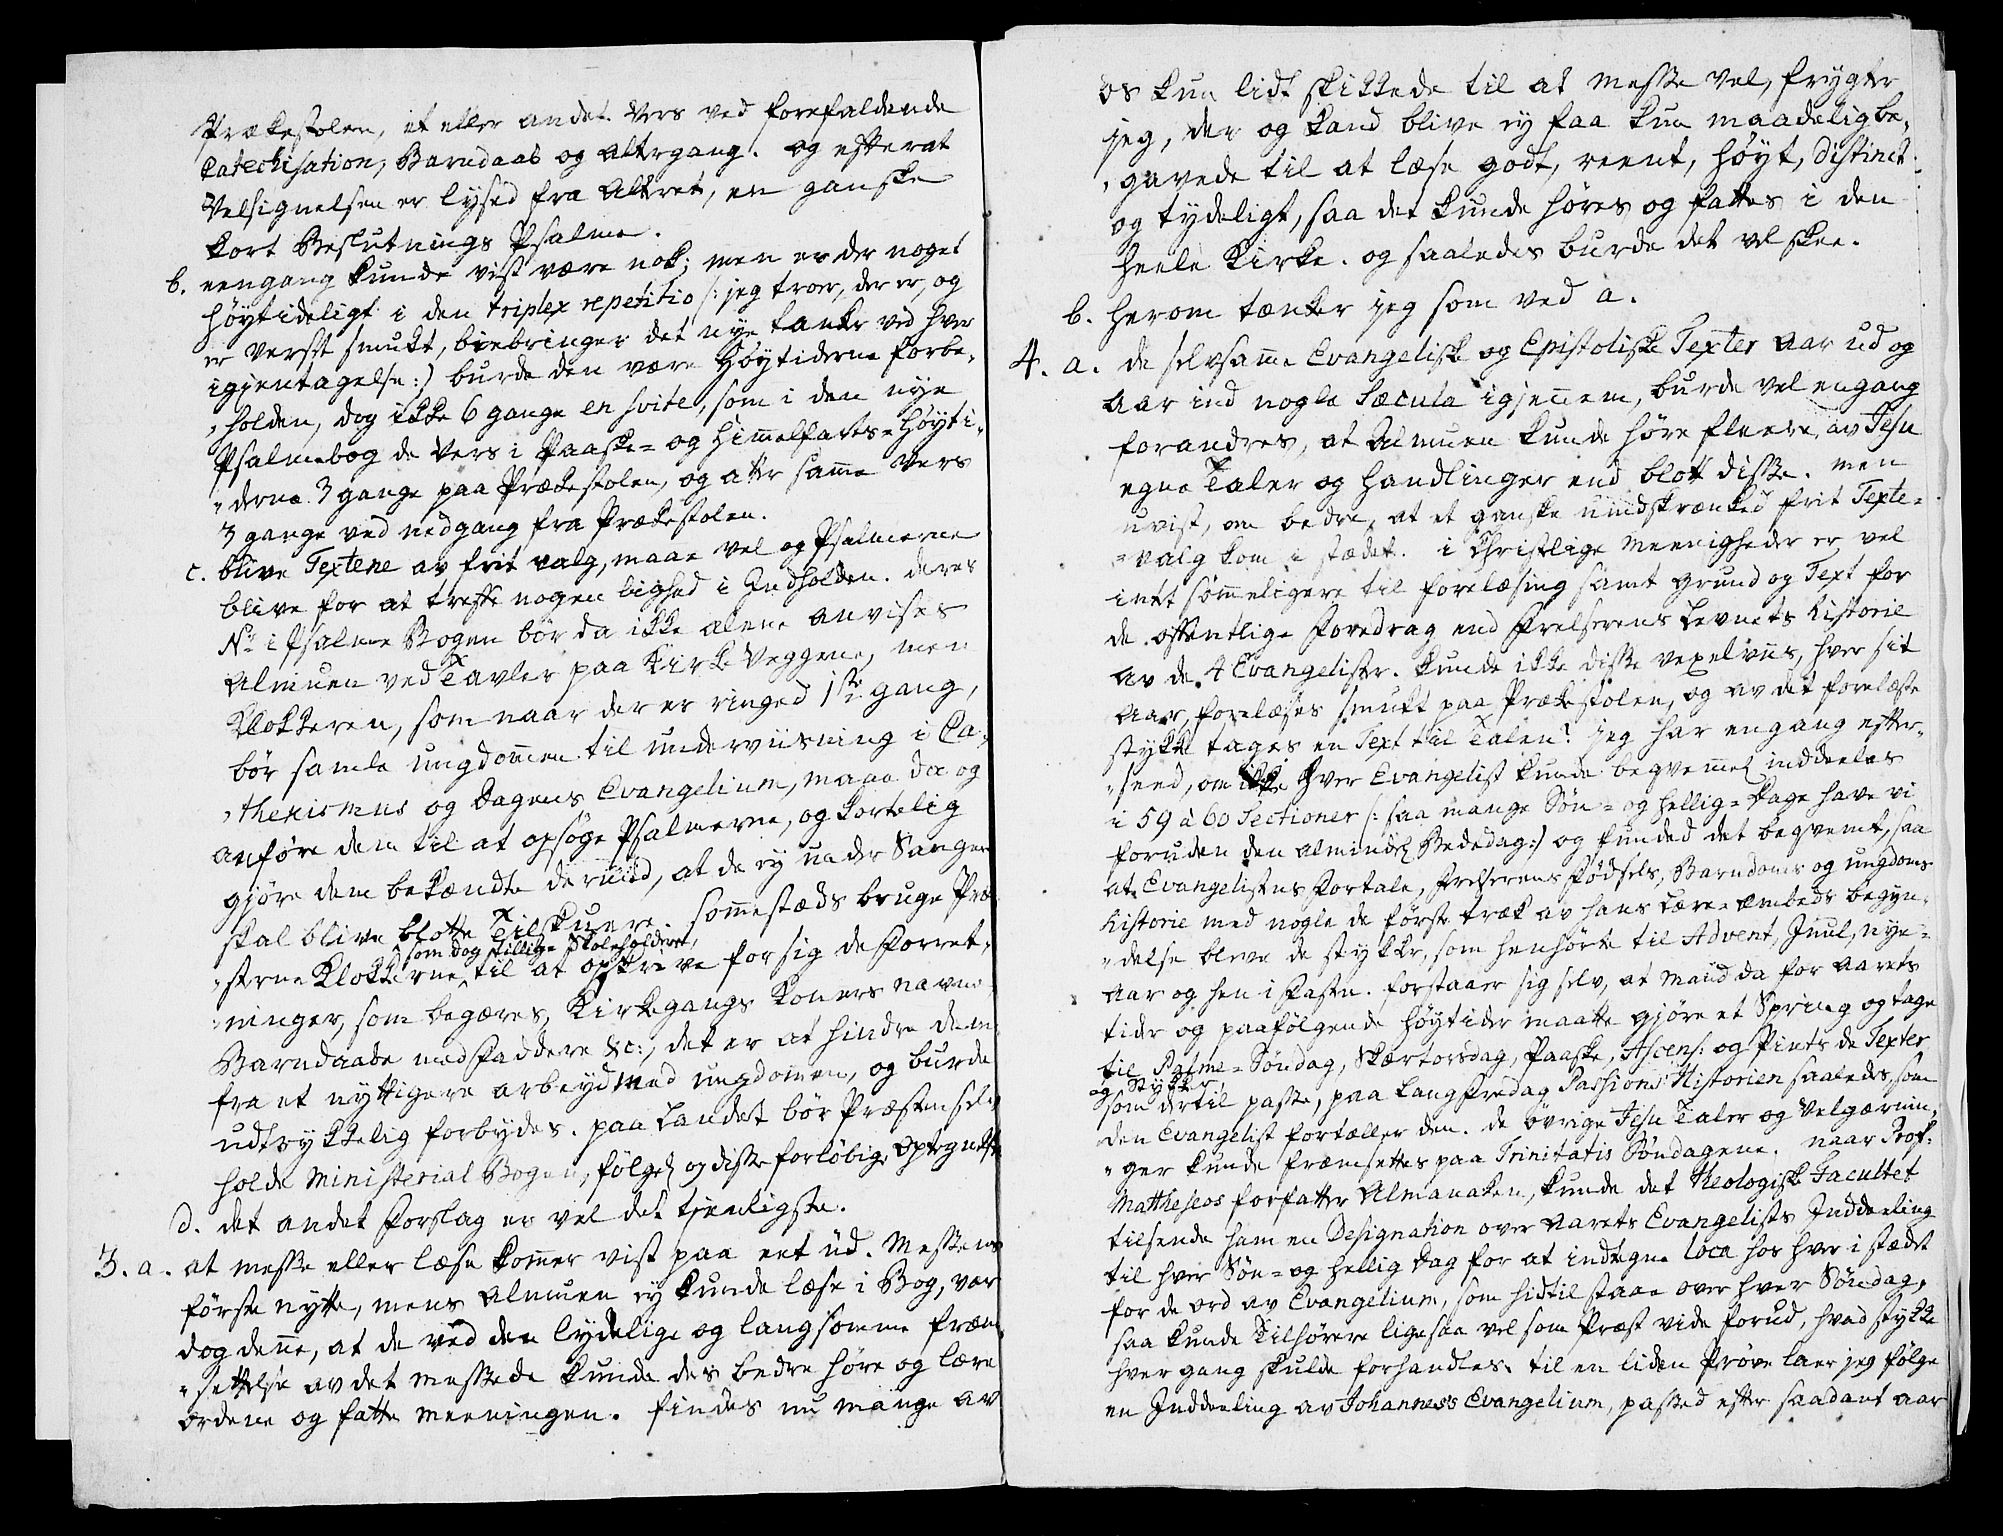 Prækestolen, et eller andet Vers ved forefaldende
Catechisation, Barndaab og Altergang. og efterat
Velsignelsen er lyset fra Altret, en ganske
kort Beslutnings Psalme.
b. eengang kunde vist være nok; men er der noget
høytideligt i den triplex repetitio /: jeg troer, der er, og
er Verset smukt, biebringer det nye tanker ved hver
igjentagelse :/ burde den være Høytiderne forbe-
"holden, dog ikke 6 gange en suite, som i den nye
Psalmebog de Vers i Paaske- og Himmelfarts-Høyti-
"derne 3 gange paa Prækestolen, og atter samme Vers
3 gange ved nedgang fra Prækestolen.
c. blive Textene av frit valg, maae vel og Psalmerne
blive for at treffe nogen lighed i Indholden. deres
No i Psalme Bogen bör da ikke alene anvises
Almuen ved Tavler paa Kirke Veggene, men
Klokkeren, som naar der er ringed 1ste gang,
bör samle ungdommen til underviisning i Ca-
"thexismus og Dagens Evangelium, maae da og
anføre dem til at opsøge Psalmerne, og kortelig
gjøre dem bekændte dermed, at de ey under Sangen
skal blive blotte Tilskuere. sommestæds bruge Præ-
som dog tillige Skoleholdere,
"sterne Klokkerne til at opskrive for sig de Forret-
"ninger, som begæres, Kirkegangs Koners navne,
Barndaabe med Faddere &c:, det er at hindre dem
fra et nyttigere arbeyd med ungdommen, og burde
udtrykkelig forbydes. paa Landet bör Præsten selv
holde Ministerial Bogen, følgel. og disse forløbige optegnelser
d. det andet Forslag er vel det tjenligste.
3. a. at messe eller læse kommer vist paa eet ud. Messens
første nytte, mens Almuen ey kunde læse i Bog, var
dog denne, at de ved den lydelige og langsomme frem-
"settelse av det messede kunde des bedre høre og lære
ordene og fatte meeningen. findes nu mange av
os kun lidt skikkede til at messe vel, frygter
jeg, der og kand blive ey faa kun maadelig be-
"gavede til at læse godt, reent, høyt, distinct
og tydeligt, saa det kunde høres og fattes i den
heele Kirke. og saaledes burde det vel skee.
b. herom tænker jeg som ved a.
4. a. de selvsamme Evangeliske og Epistoliske Texter Aar ud og
Aar ind nogle Sæcula igjennem, burde vel engang
forandres, at Almuen kunde høre fleere av Jesu
egne Taler og handlinger end blott disse. men
uvist, om bedre, at et ganske uindskrænked frit Texte-
"valg kom i stædet. i Christlige Meenigheder er vel
intet sømmeligere til forelæsing samt grund og Text for
de offentlige Foredrag end Frelserens Levnets Historie
av de 4 Evangelister. kunde ikke disse vexelviis, hver sit
Aar, forelæses smukt paa Prækestolen, og av det forelæste
stykke tages en Text til Talen? jeg har engang efter-
"seed, om ikke hver Evangelist kunde beqvemmel. inddeeles
i 59 à 60 Sectioner /: saa mange Søn- og Hellig-Dage have vi
foruden den almindel. Bededag :/ og funded det beqvemt, saa
at Evangelistens Fortale, Frelserens Fødsels, Barndoms og ungdoms
Historie med nogle de første træk av hans Lære-Embeds begyn-
"delse bleve de stykker, som henhørte til Advent, Juul, nye-
Aar og hen i Fasten. forstaaer sig selv, at mand da for Aarets
tider og paafølgende Høytider maatte gjøre et Spring og tage
til Palme-Søndag, Skærtorsdag, Paaske, Ascens: og Pints de Texter
og Stykker,
som dertil passe, paa Langfredag Passions Historien saaledes, som
den Evangelist fortæller den. de øvrige Jesu Taler og Velgærnin-
"ger kunde fremsettes paa Trinitatis Søndagene. naar Prof:
Matheseos forfatter Almanaken, kunde det Theologiske Facultet
tilsende ham en Designation over Aarets Evangelists Inddeeling
til hver Søn- og Hellig Dag for at indtegne loca hos hver i stædet
for de ord av Evangelium, som hidtil staae over hver Søndag,
saa kunde Tilhørere ligesaa vel som Præst vide forud, hvad stykke
hver gang skulde forhandles. til en liden Prøve laer jeg følge
en Inddeeling av Johannes's Evangelium, passed efter saadant Aar